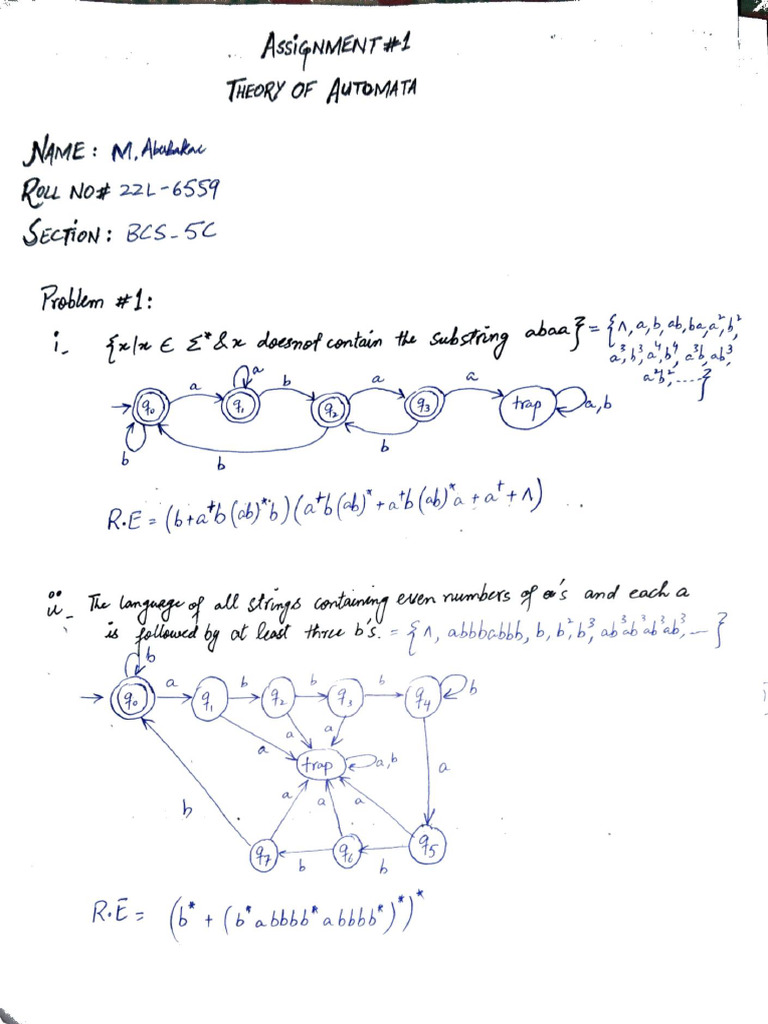 ASSIGNMENT #1
THEORY OF AUTOMATA
NAME: M. Abubakar
ROLL NO# 22L-6559
SECTION: BCS-5C
Problem #1:
i- {x|x ∈ Σ* & x doesnot contain the substring abaa} = {Λ, a, b, ab, ba, a², b²,
a³, b³, a⁴, b⁴, a³b, ab³,
a²b², ....}
a
a b a a
q₀ q₁ q₂ q₃ trap a,b
b b b
R.E = (b+a⁺b(ab)*b)(a⁺b(ab)*+a⁺b(ab)*a+a⁺+Λ)
ii- The language of all strings containing even numbers of a's and each a
is followed by at least three b's. = {Λ, abbbabbb, b, b², b³, ab³ab³ab³ab³, ...}
b
a b b b b
q₀ q₁ q₂ q₃ q₄
a a a
trap a,b a
b a a a
q₇ q₆ q₅
b b
R.E = (b* + (b*abbbb*abbbb*)*)*